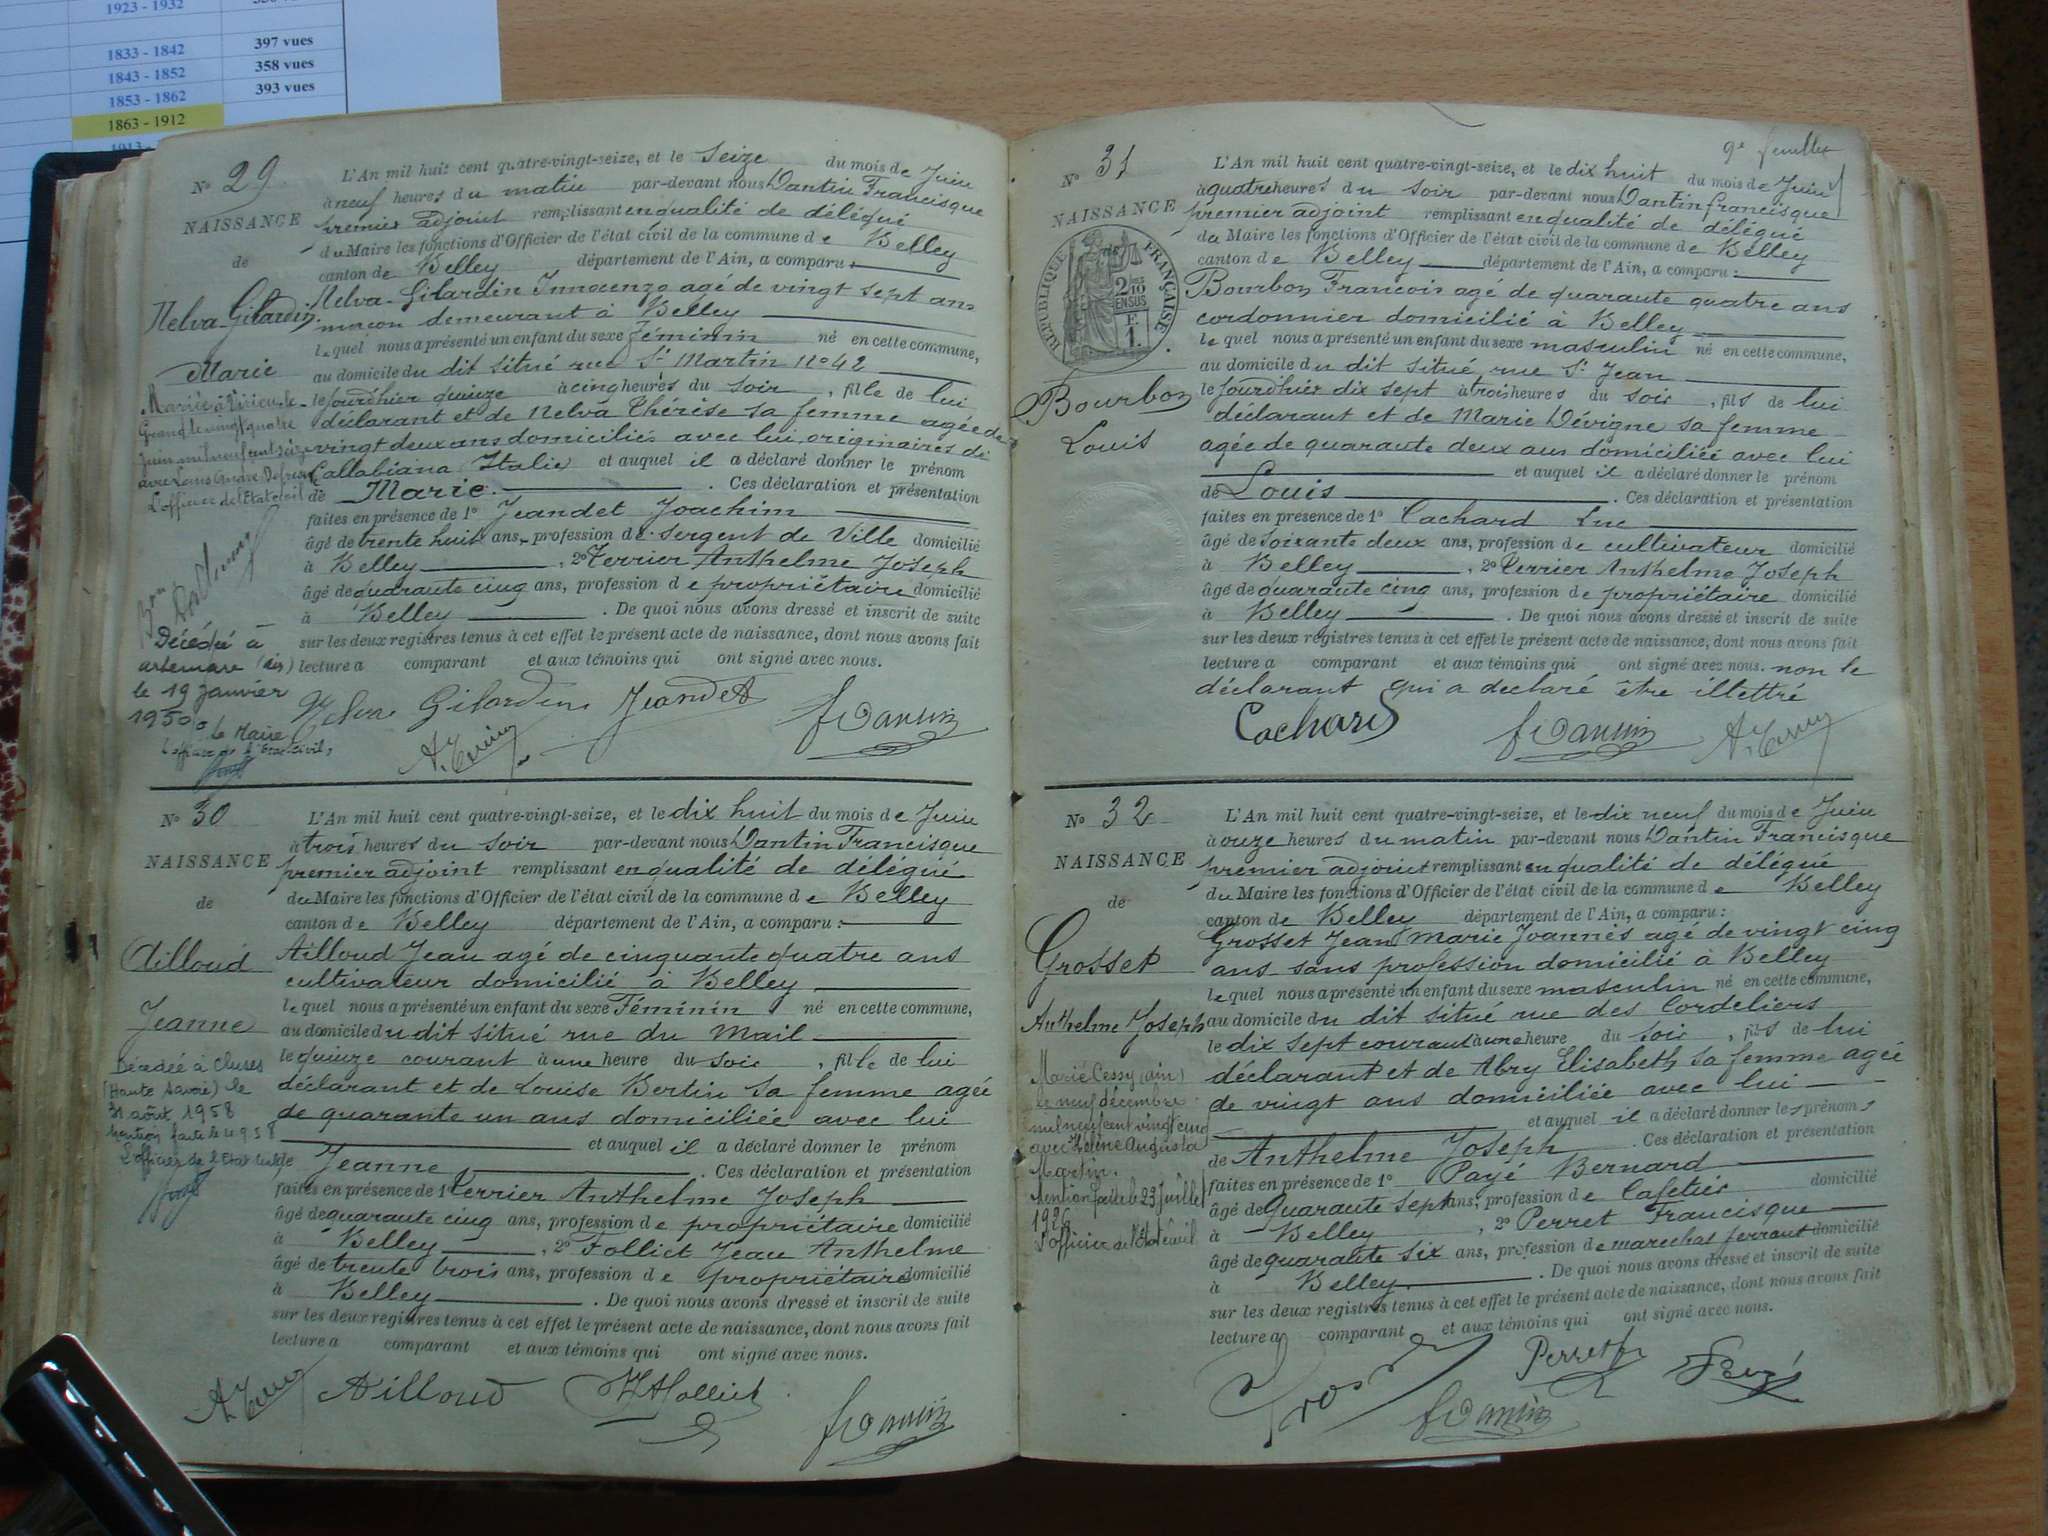 1923 - 1932
1833 - 1842 397 vues
1843 - 1852 358 vues
1853 - 1862 393 vues
1863 - 1912
N° 29
NAISSANCE
de
Nelva-Gilardin
Marie
Mariée à Virieu-le-
Grand le vingt quatre
Juin mil neuf cent seize
avec Louis André
L'officier de l'Etat civil
Décédé à
artemare (Ain)
le 19 Janvier
1950
le Maire
l'officier de l'Etat civil,
L'An mil huit cent quatre-vingt-seize, et le Seize du mois de Juin
à neuf heures du matin par-devant nous Dantin Francisque
premier adjoint remplissant en qualité de délégué
du Maire les fonctions d'Officier de l'état civil de la commune de Belley
canton de Belley département de l'Ain, a comparu :
Nelva-Gilardin Innocenzo agé de vingt sept ans
maçon demeurant à Belley
lequel nous a présenté un enfant du sexe féminin né en cette commune,
au domicile du dit situé rue St Martin N° 42
le jourdhier quinze à cinq heures du soir, fille de lui
déclarant et de Nelva Thérèse sa femme agée de
vingt deux ans domiciliés avec lui, originaires de
Callabiana Italie et auquel il a déclaré donner le prénom
de Marie. Ces déclaration et présentation
faites en présence de 1° Jeandet Joachim
âgé de trente huit ans, profession de sergent de Ville domicilié
à Belley, 2° Terrier Anthelme Joseph
âgé de quarante cinq ans, profession de propriétaire domicilié
à Belley. De quoi nous avons dressé et inscrit de suite
sur les deux registres tenus à cet effet le présent acte de naissance, dont nous avons fait
lecture a comparant et aux témoins qui ont signé avec nous.
Nelva Gilardin Jeandet
A. Terrier F Dantin
N° 30
NAISSANCE
de
Ailloud
Jeanne
Décédée à Cluses
(Haute Savoie) le
31 août 1958
Mention faite le 4 9 58
L'officier de l'Etat Civil
L'An mil huit cent quatre-vingt-seize, et le dix huit du mois de Juin
à trois heures du soir par-devant nous Dantin Francisque
premier adjoint remplissant en qualité de délégué
du Maire les fonctions d'Officier de l'état civil de la commune de Belley
canton de Belley département de l'Ain, a comparu :
Ailloud Jean agé de cinquante quatre ans
cultivateur domicilié à Belley
lequel nous a présenté un enfant du sexe Féminin né en cette commune,
au domicile du dit situé rue du Mail
le quinze courant à une heure du soir, fille de lui
déclarant et de Louise Bertin sa femme agée
de quarante un ans domiciliée avec lui
et auquel il a déclaré donner le prénom
de Jeanne. Ces déclaration et présentation
faites en présence de 1° Terrier Anthelme Joseph
âgé de quarante cinq ans, profession de propriétaire domicilié
à Belley, 2° Folliet Jean Anthelme
âgé de trente trois ans, profession de propriétaire domicilié
à Belley. De quoi nous avons dressé et inscrit de suite
sur les deux registres tenus à cet effet le présent acte de naissance, dont nous avons fait
lecture a comparant et aux témoins qui ont signé avec nous.
A. Terrier Ailloud Folliet
F Dantin
9e feuillet
N° 31
NAISSANCE
de
RÉPUBLIQUE FRANÇAISE
2/10 EN SUS
F.
1.
Bourbon
Louis
L'An mil huit cent quatre-vingt-seize, et le dix huit du mois de Juin
à quatre heures du soir par-devant nous Dantin francisque
premier adjoint remplissant en qualité de délégué
du Maire les fonctions d'Officier de l'état civil de la commune de Belley
canton de Belley département de l'Ain, a comparu :
Bourbon François agé de quarante quatre ans
cordonnier domicilié à Belley
lequel nous a présenté un enfant du sexe masculin né en cette commune,
au domicile du dit situé, rue St Jean
le jourdhier dix sept à trois heures du soir, fils de lui
déclarant et de Marie Dévigne sa femme
agée de quarante deux ans domiciliée avec lui
et auquel il a déclaré donner le prénom
de Louis. Ces déclaration et présentation
faites en présence de 1° Cachard Luc
âgé de soixante deux ans, profession de cultivateur domicilié
à Belley, 2° Terrier Anthelme Joseph
âgé de quarante cinq ans, profession de propriétaire domicilié
à Belley. De quoi nous avons dressé et inscrit de suite
sur les deux registres tenus à cet effet le présent acte de naissance, dont nous avons fait
lecture a comparant et aux témoins qui ont signé avec nous. non le
déclarant qui a déclaré être illettré
Cachard F Dantin A. Terrier
N° 32
NAISSANCE
de
Grosset
Anthelme Joseph
Marié Cessy (Ain)
le neuf décembre
mil neuf cent vingt cinq
avec Hélène Augusta
Martin.
Mention faite le 23 Juillet
1926
L'officier de l'Etat civil
L'An mil huit cent quatre-vingt-seize, et le dix neuf du mois de Juin
à onze heures du matin par-devant nous Dantin Francisque
premier adjoint remplissant en qualité de délégué
du Maire les fonctions d'Officier de l'état civil de la commune de Belley
canton de Belley département de l'Ain, a comparu :
Grosset Jean Marie Joannès agé de vingt cinq
ans sans profession domicilié à Belley
lequel nous a présenté un enfant du sexe masculin né en cette commune,
au domicile du dit situé rue des Cordeliers
le dix sept courant à une heure du soir, fils de lui
déclarant et de Abry Elisabeth sa femme agée
de vingt ans domiciliée avec lui
et auquel il a déclaré donner les prénoms
de Anthelme Joseph. Ces déclaration et présentation
faites en présence de 1° Payé Bernard
âgé de Quarante sept ans, profession de Cafetier domicilié
à Belley, 2° Perret Francisque
âgé de quarante six ans, profession de marechal ferrant domicilié
à Belley. De quoi nous avons dressé et inscrit de suite
sur les deux registres tenus à cet effet le présent acte de naissance, dont nous avons fait
lecture a comparant et aux témoins qui ont signé avec nous.
Grosset Perret Payé
F Dantin